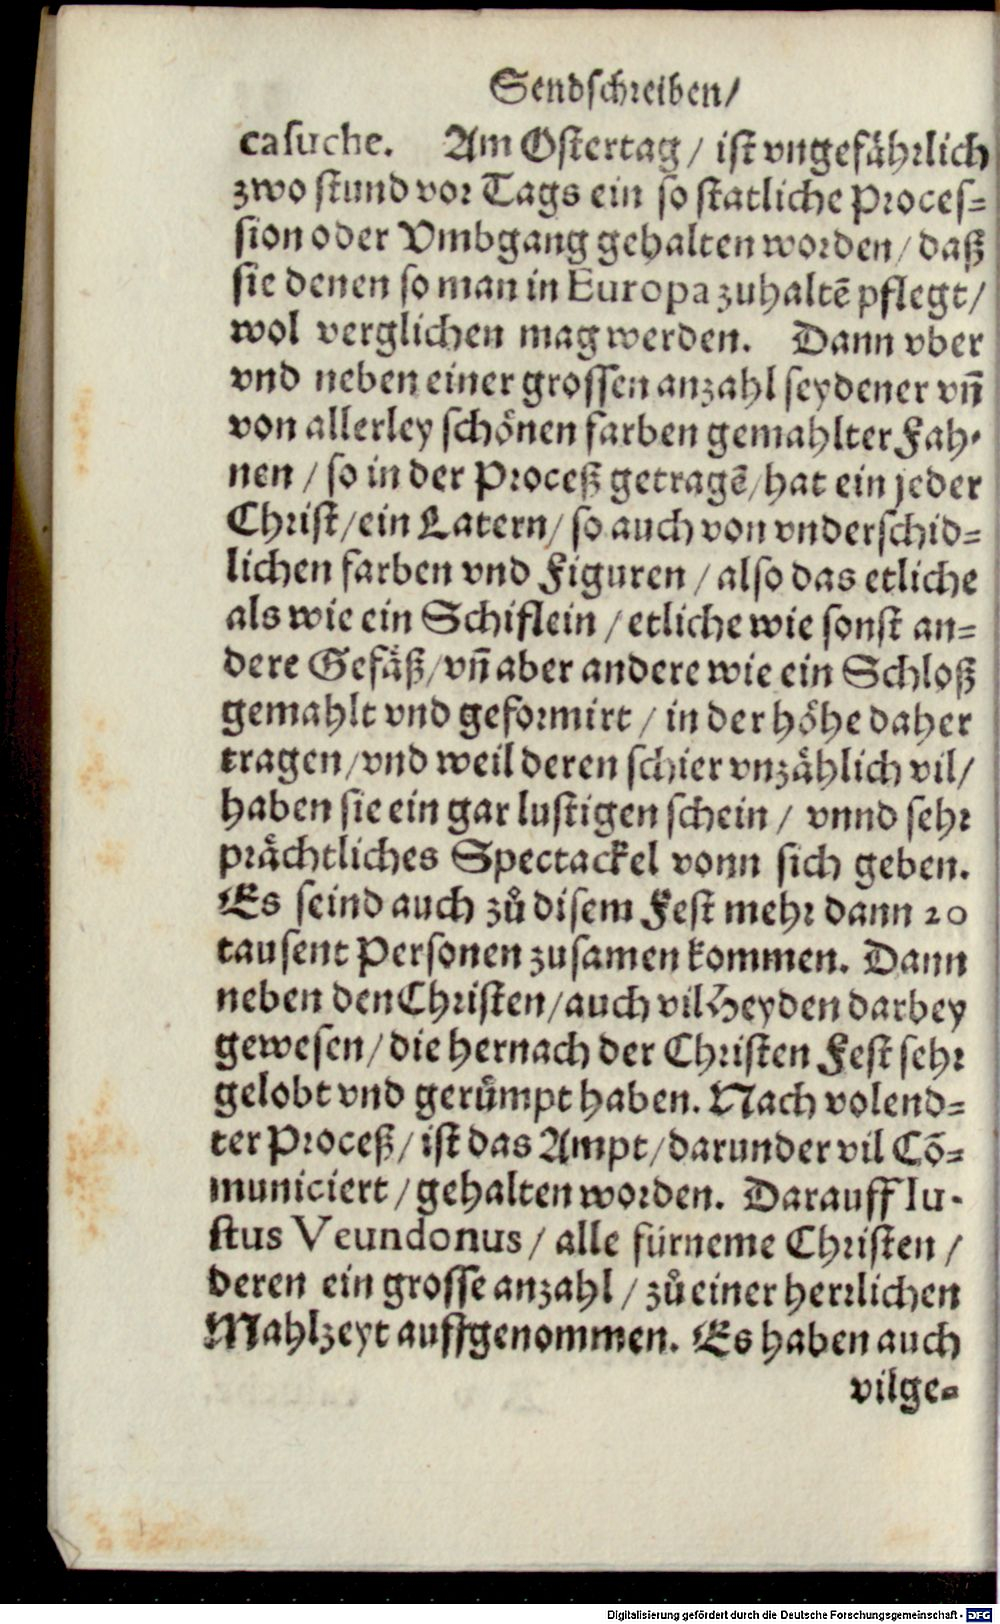 Sendschreiben/
casuche. Am Ostertag / ist vngefährlich
zwo stund vor Tags ein so statliche Proces-
sion oder Vmbgang gehalten worden / daß
sie denen so man in Europa zuhaltẽ pflegt /
wol verglichen mag werden. Dann vber
vnd neben einer grossen anzahl seydener vñ
von allerley schönen farben gemahlter Fah-
nen / so in der Proceß getragẽ / hat ein jeder
Christ / ein Latern / so auch von vnderschid-
lichen farben vnd Figuren / also das etliche
als wie ein Schiflein / etliche wie sonst an-
dere Gefäß / vñ aber andere wie ein Schloß
gemahlt vnd geformirt / in der höhe daher
tragen / vnd weil deren schier vnzählich vil /
haben sie ein gar lustigen schein / vnnd sehr
prächtliches Spectackel vonn sich geben.
Es seind auch zů disem Fest mehr dann 20
tausent Personen zusamen kommen. Dann
neben den Christen / auch vil Heyden darbey
gewesen / die hernach der Christen Fest sehr
gelobt vnd gerůmpt haben. Nach volend-
ter Proceß / ist das Ampt / darunder vil Cõ-
municiert / gehalten worden. Darauff Iu-
stus Veundonus / alle fürneme Christen /
deren ein grosse anzahl / zů einer herrlichen
Mahlzeyt auffgenommen. Es haben auch
vilge-
Digitalisierung gefördert durch die Deutsche Forschungsgemeinschaft - DFG